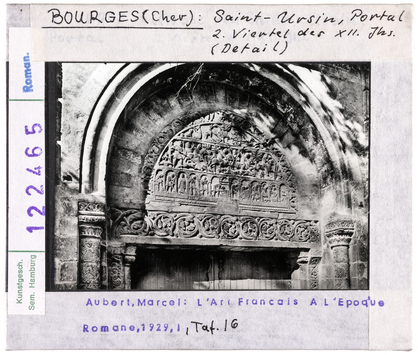 BOURGES (Cher): Saint-Ursin, Portal
2. Viertel des XII. Jhs.
(Detail)
Roman.
122465
Kunstgesch.
Sem. Hamburg
Aubert, Marcel: L'Art Francais A L'Epoque
Romane, 1929, I, Taf. 16